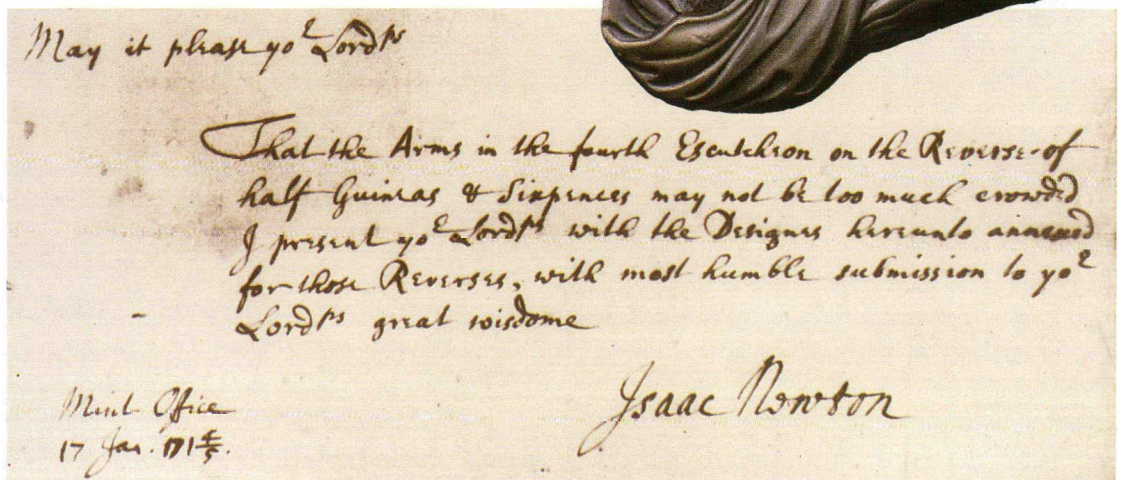 May it please yoʳ Lordᵖˢ
That the Arms in the fourth Escutcheon on the Reverse of
half Guineas & Sixpences may not be too much crowded
I present yoʳ Lordᵖˢ with the Designes hereunto annexed
for those Reverses, with most humble submission to yoʳ
Lordᵖˢ great wisdome
Isaac Newton
Mint Office
17 Jan. 171⁴⁄₅.